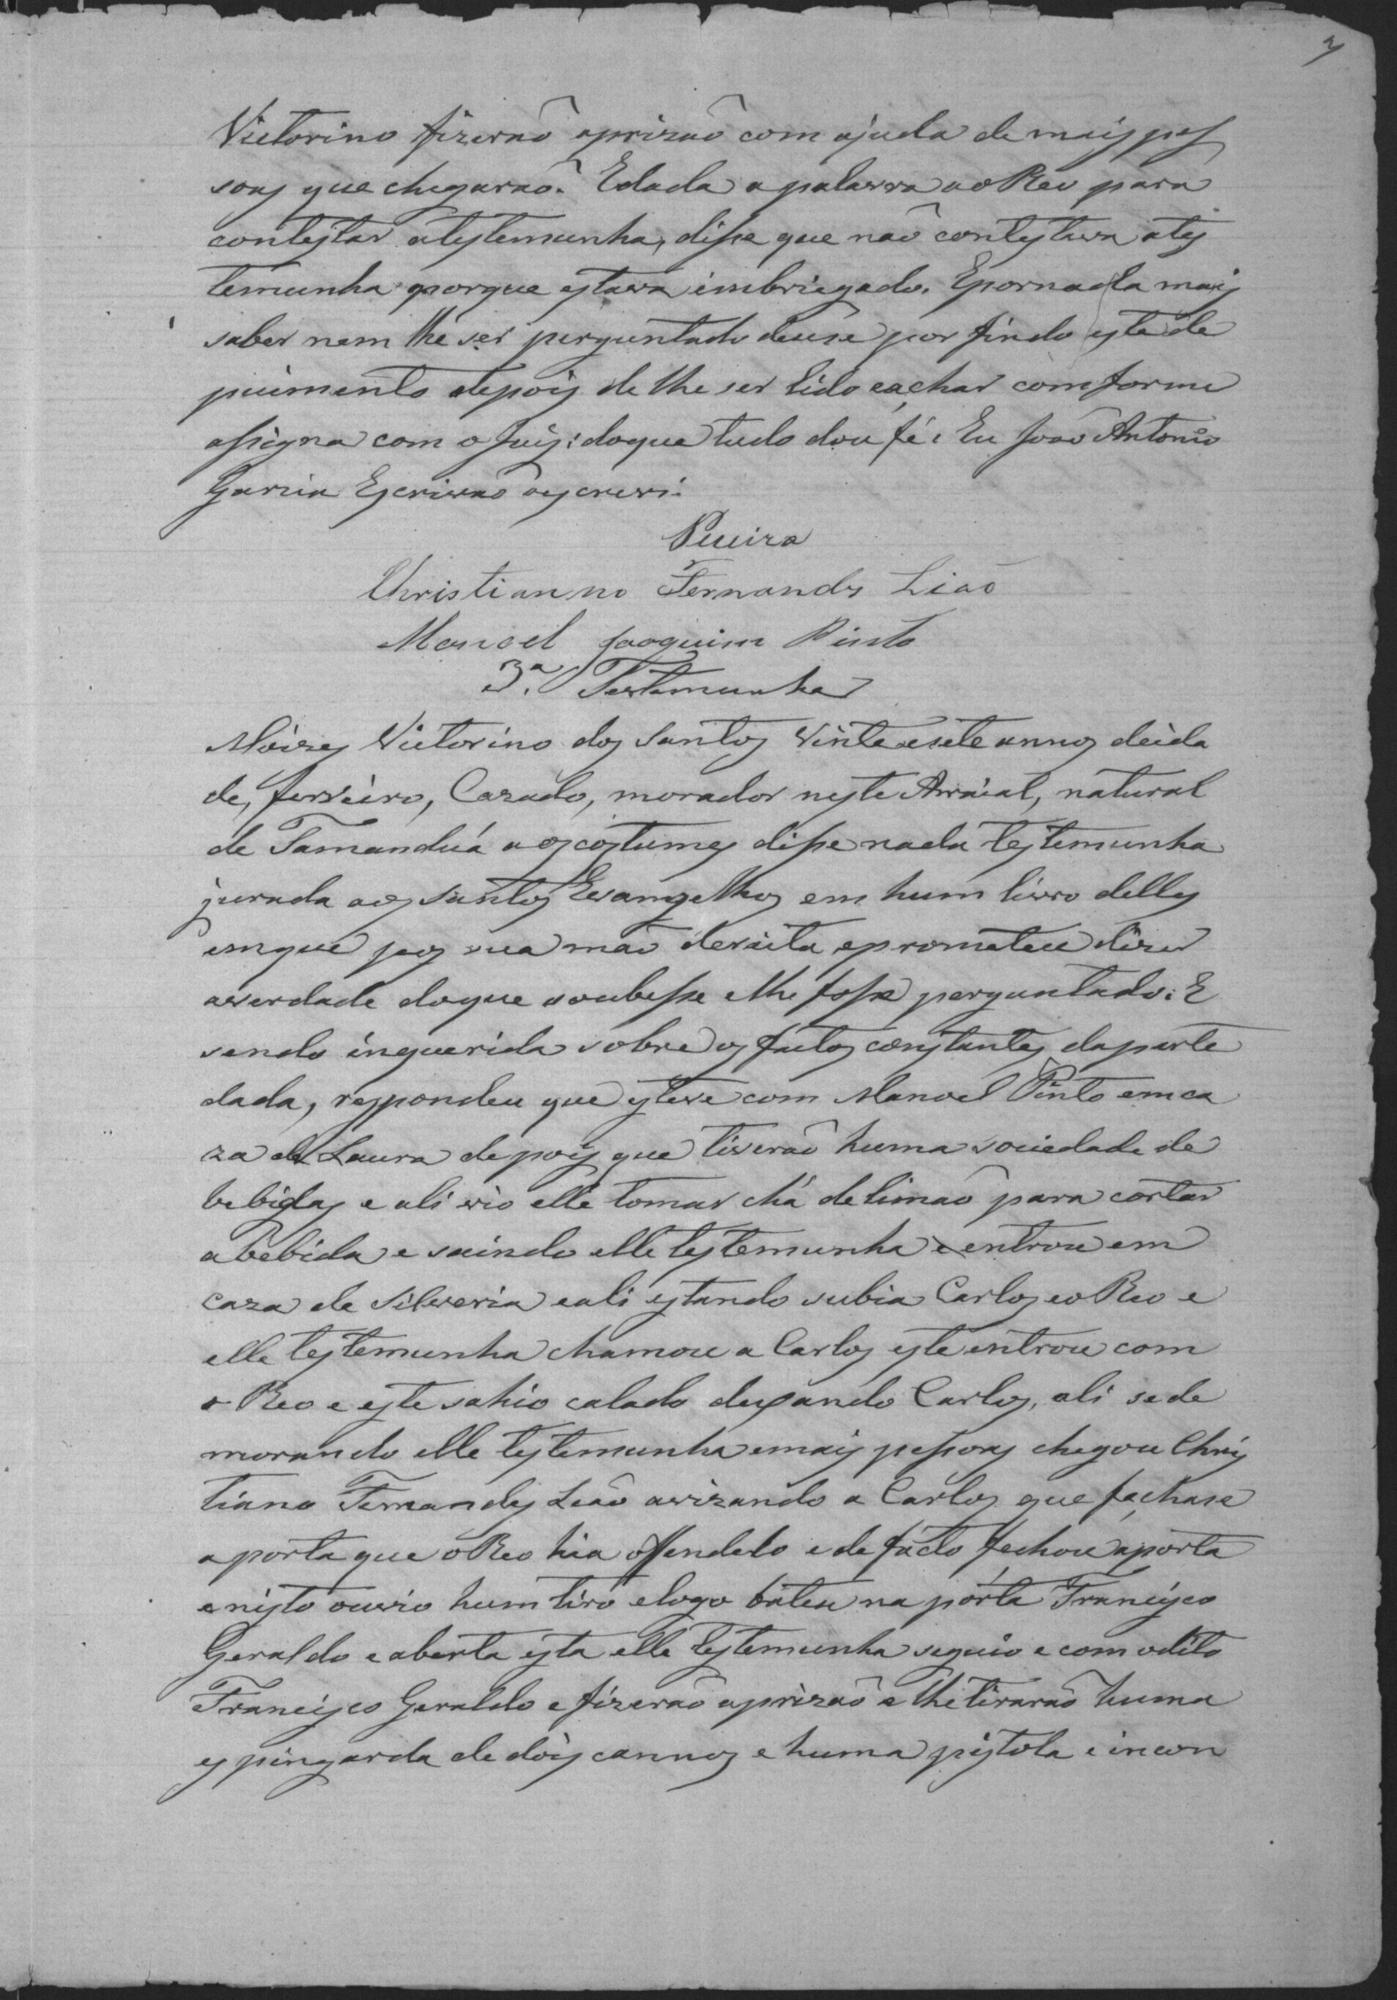 Victorino fizerão aprizão com ajuda de mais pes
soas que chegarão. Edada apalavra ao Reo para
contestar atestemunha, disse que não contestava ates
temunha porque estava imbriagado. Epornada mais
saber nem lhe ser perguntado deuse por findo este de
puimento depois de lhe ser lido eachar comforme
assigna com o Juis: doque tudo dou fé. Eu João Antonio
Garcia Escrivão oescrevi.
Christianno Fernandes Lião
Manoel Joaquim Pinto
3ª Testemunha
Moizes Victorino dos Santos vinte esete annos deida
de, ferreiro, Cazado, morador neste Arraial, natural
de Tamanduá aos costumes disse nada testemunha
jurada aos santos Evangelhos em hum livro delles
emque pos sua mão dereita eprometeu dizer
averdade doque soubesse elhe fosse perguntado: E
sendo inquerida sobre os factos constantes daparte
dada, respondeu que esteve com Manoel Pinto emca
za de Laura depois que tiverão huma sociedade de
bebidas e ali vio elle tomar chá delimão para cortar
abebida e saindo elle testemunha e entrou em
caza de Silveria eali estando subia Carlos eo Reo e
elle testemunha chamou a Carlos este entrou com
o Reo e este sahio calado dexando Carlos, ali se de
morando elle testemunha emais pessoas chegou Chris
tiano Fernandes Leão avizando a Carlos que fechase
aporta que oReo hia offendelo e de facto fechou aporta
enisto ouvio hum tiro elogo bateu na porta Francisco
Geraldo e aberta esta elle testemunha seguio e com odito
Francisco Geraldo e fizerão aprizão e lhe tirarão huma
espingarda de dois cannos e huma pistola e incon